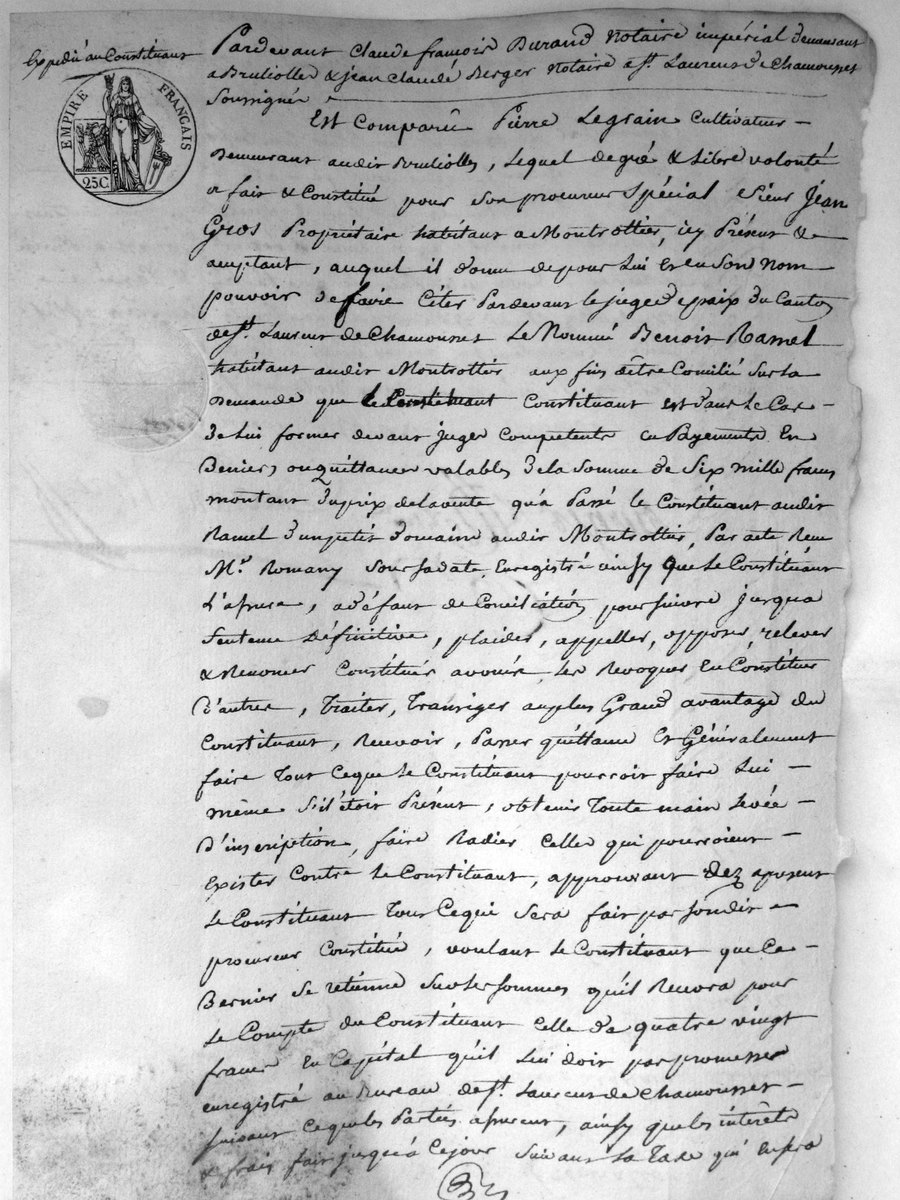 Expedié au Constituant
EMPIRE FRANÇAIS
25C
Pardevant Claude françois Durand Notaire impérial demeurant
a Brullioles & jean Claude Berger Notaire a St. Laurent de Chamousset
Soussignés
Est Comparu Pierre Legrain Cultivateur
Demeurant audit Brullioles, Lequel de gré & Libre volonté
a fait & Constitué pour son procureur Spécial Sieur Jean
Gros Propriétaire habitant a Montrottier, icy Présent &
acceptant, auquel il donne de pour Lui et en Son Nom
pouvoir de faire Citer Pardevant le juge de paix du Canton
de St. Laurent de Chamousset Le Nommé Benoit Ramel
habitant audit Montrottier aux fins d'être Concilié Sur la
Demande que le Constituant Constituant est dans le Cas
de Lui former devant juges Competents en Payements En
Deniers ou quittances valables de la Somme de Six mille francs
montant du prix de la vente qu'a Passé le Constituant audit
Ramel d'un petit domaine audit Montrottier, Par acte Reçu
Me. Romany Sous sa date, Enregistré ainsy que le Constituant
L'assure, a défaut de Conciliation poursuivre jusqua
Sentence Définitive, plaider, appeller, opposer, relever
& Renoncer Constituer avoués, les Revoquer En Constituer
d'autres, Traiter, Transiger au plus Grand avantage du
Constituant, Recevoir, Passer quittance Et Généralement
faire Tout Ce que le Constituant pourroit faire Lui
même S'il étoit Présent, obtenir Toute main Levée
D'inscription, faire Radier Celles qui pourroient
Exister Contre le Constituant, approuvant dez aprésent
le Constituant Tout Ce qui Sera fait par sondit
procureur Constitué, voulant le Constituant que Ce
Dernier se retienne Sur les sommes qu'il Recevra pour
le Compte du Constituant Celle de quatre vingt
francs En Capital qu'il Lui doit par promesse
enregistré au Bureau de St. Laurent de Chamousset
suivant Ce que les Parties assurent, ainsy que les intérêts
& frais fait jusqu'à Ce jour Suivant la Taxe qui En sera